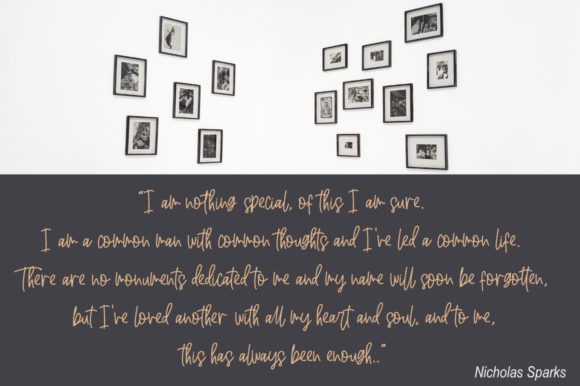 "I am nothing special, of this I am sure.
I am a common man with common thoughts and I've led a common life.
There are no monuments dedicated to me and my name will soon be forgotten,
but I've loved another with all my heart and soul, and to me,
this has always been enough.."
Nicholas Sparks